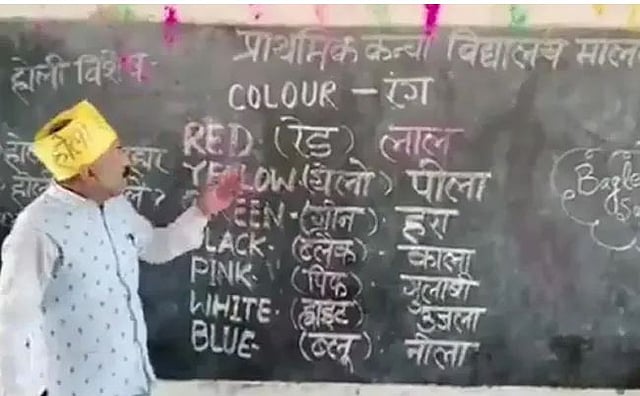 प्राथमिक कन्या विद्यालय माल
होली विशेष-
COLOUR - रंग
RED. (रेड) लाल
YELLOW. (येलो) पीला
GREEN - (ग्रीन). हरा
BLACK- (ब्लैक). काला
PINK. (पिंक) गुलाबी
WHITE. (ह्वाइट) उजला
BLUE- (ब्लू). नीला
होली
Bagle